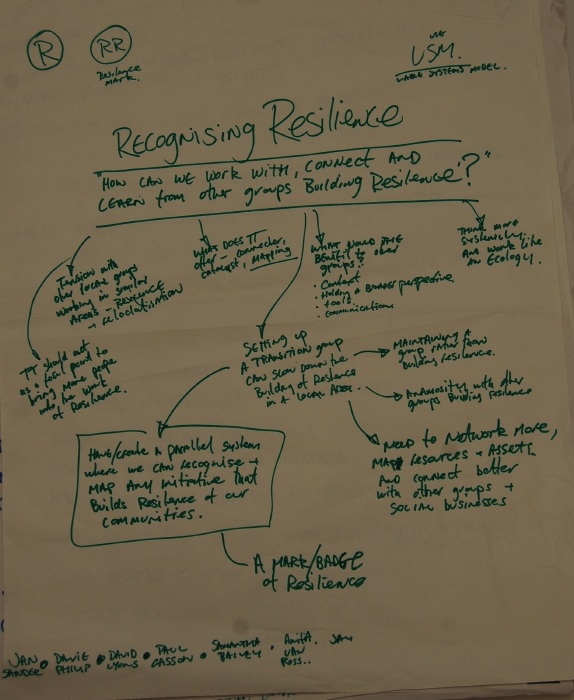 R
RR
Resilience
MARK.
USE
USM.
VIABLE SYSTEMS MODEL.
RECOGNISING RESILIENCE
"HOW CAN WE WORK WITH, CONNECT AND
LEARN from other groups Building Resilience?"
Tension with
other local groups
working in similar
AREAS - RESILIENCE
+ relocalisation
WHAT DOES TT
offer - connector,
catalyst, MAPPING
WHAT WOULD THE
BENEFIT to other
groups?
· Context
· Holding A BROADER perspective
· tools.
· communications
THINK more
Systemically.
AND work like
AN Ecology.
TT should act
as a focal point to
bring more people
into the work
of Resilience.
SETTING up
A TRANSITION group
CAN slow down the
Building of Resilience
in A LOCAL AREA.
MAINTAINING A
group rather than
building resilience.
ANIMOSITY with other
groups Building resilience
NEED to NETWORK More,
MAP resources + ASSETS
AND connect better
with other groups +
SOCIAL businesses
HAVE/create A parallel system
where we can recognise +
MAP ANY initiative that
Builds Resilience of our
COMMUNITIES.
A MARK/BADGE
of Resilience
JAN · DAVIE · DAVID · PAUL SAMANTHA · Anita. JAN
PHILIP LYONS CASSON · BAILEY VAN
ROSS..